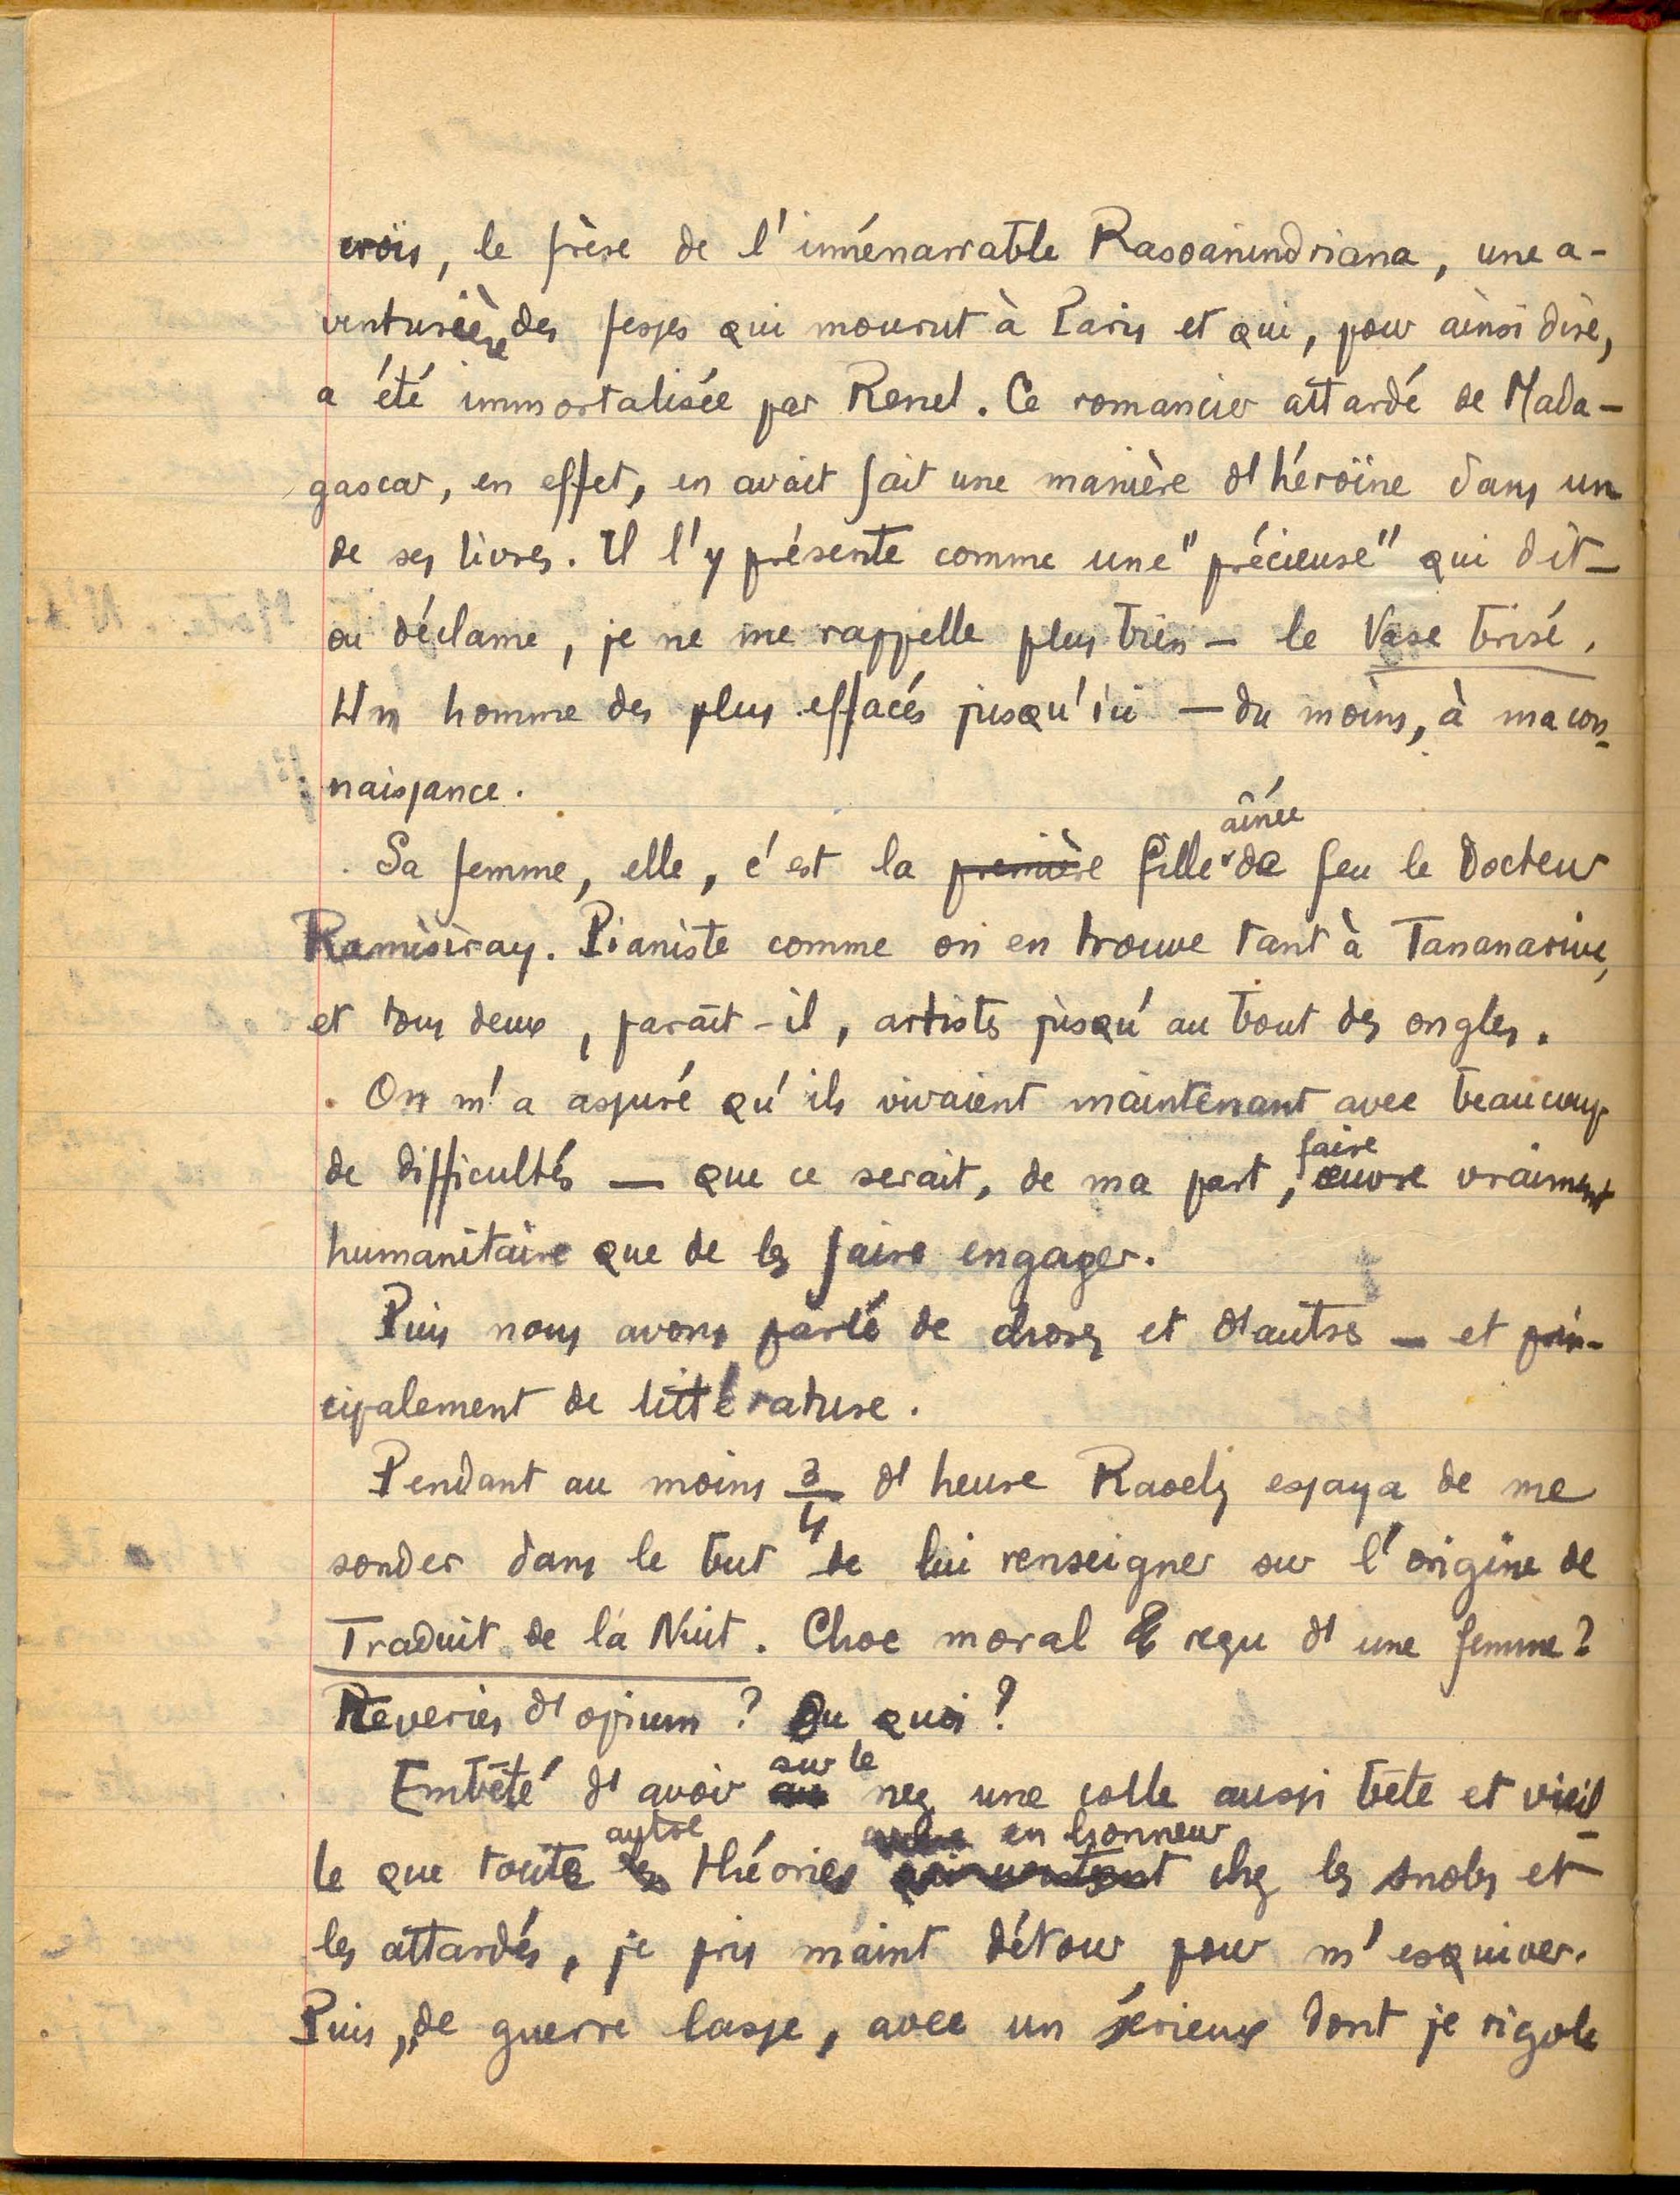 crois, le frère de l'innénarrable Rasoanindriana, une a-
venturière des fesses qui mourut à Paris et qui, pour ainsi dire,
a été immortalisée par Renel. Ce romancier attardé de Mada-
gascar, en effet, en avait fait une manière d'héroïne dans un
de ses livres. Il l'y présente comme une "précieuse" qui dit –
ou déclame, je ne me rappelle plus bien – le Vase brisé.
Un homme des plus effacés jusqu'ici – du moins, à ma con-
naissance.
Sa femme, elle, c'est la première fille aînée de feu le Docteur
Ramisiray. Pianiste comme on en trouve tant à Tananarive,
et tous deux, paraît-il, artistes jusqu'au bout des ongles.
On m'a assuré qu'ils vivaient maintenant avec beaucoup
de difficultés – que ce serait, de ma part, faire œuvre vraiment
humanitaire que de les faire engager.
Puis nous avons parlé de choses et d'autres – et prin-
cipalement de littérature.
Pendant au moins 3/4 d'heure Raoely essaya de me
sonder dans le but de lui renseigner sur l'origine de
Traduit de la Nuit. Choc moral reçu d'une femme?
Reveries d'opium? Ou quoi?
Embêté d'avoir sur le nez une colle aussi bête et vieil-
le que toute autre théorie en honneur chez les snobs et
les attardés, je pris maint détour pour m'esquiver.
Puis, de guerre lasse, avec un sérieux dont je rigole